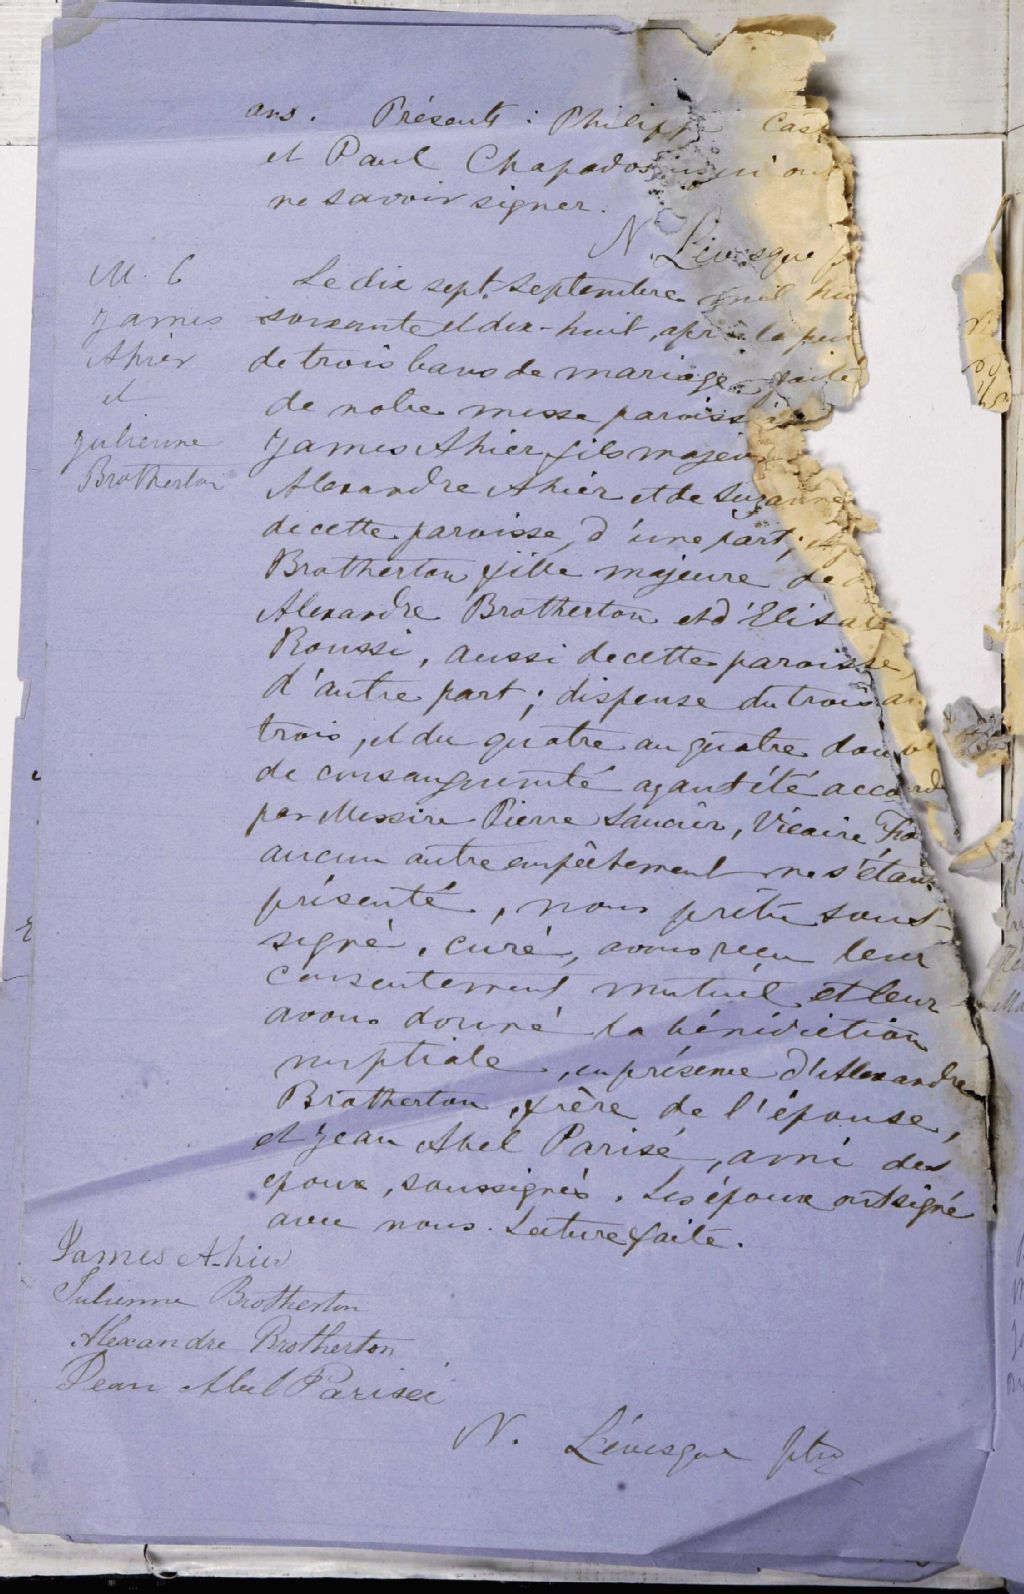 ans. Présents : Philippe
et Paul Chapados qui ont
ne savoir signer.
N. Lévesque
M. 6
James
Ahier
et
Julienne
Brotherton
Le dix sept Septembre mil hui
soixante et dix-huit, après la pu
de trois bans de mariage faite
de notre messe paroissi
James Ahier fils majeur
Alexandre Ahier et de Suzanne
de cette paroisse, d'une part;
Brotherton fille majeure de
Alexandre Brotherton et d'Elisab
Roussi, aussi de cette paroisse,
d'autre part; dispense du trois au
trois, et du quatre au quatre doub
de consanguinité ayant été accord
par Messire Pierre Saucier, Vicaire
aucun autre empêchement ne s'étant
présenté, nous prêtre sous-
signé, curé, avons reçu leur
consentement mutuel et leur
avons donné la bénédiction
nuptiale, en présence d'Alexandre
Brotherton, frère de l'épouse,
et Jean Abel Parisé, ami des
époux, soussignés. Les époux ont signé
avec nous. Lecture faite.
James Ahier
Julienne Brotherton
Alexandre Brotherton
Jean Abel Pariseé
N. Lévesque ptre